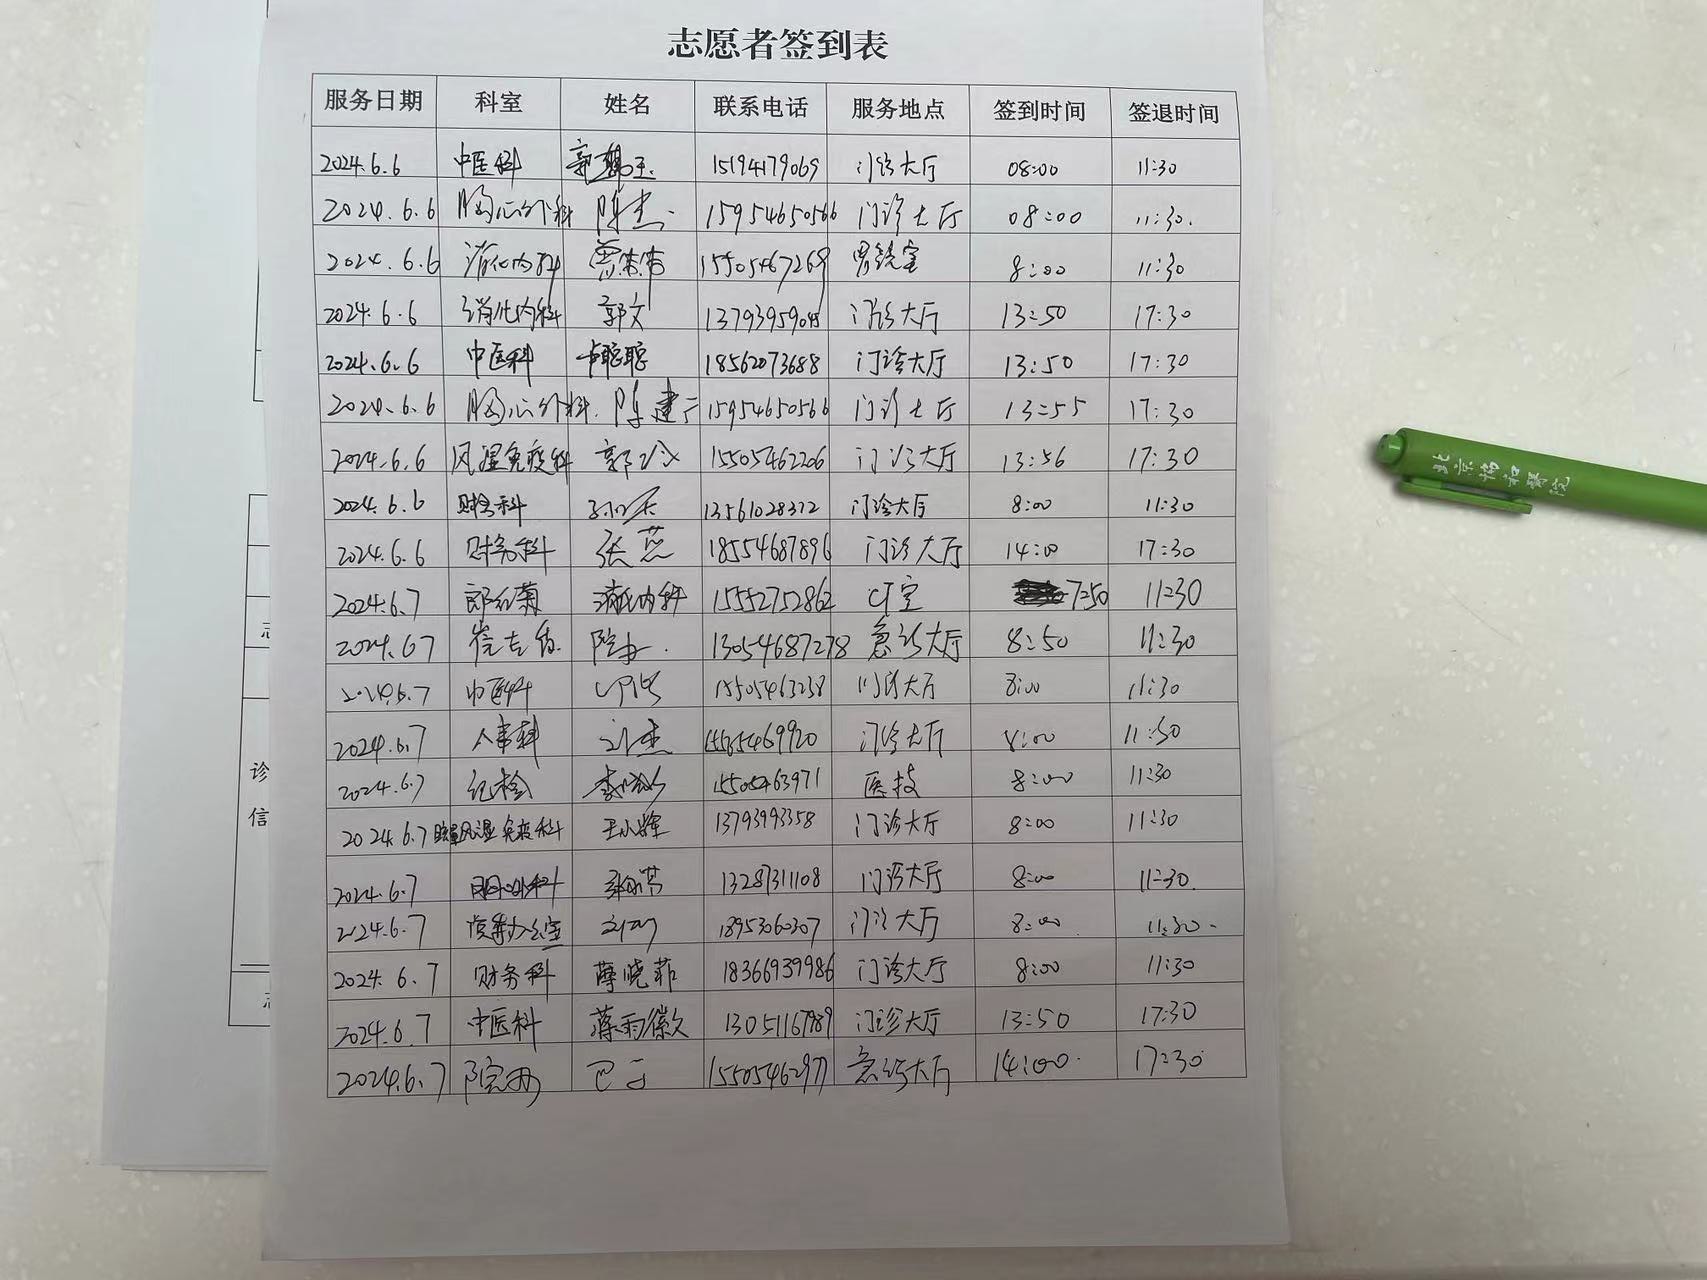 志愿者签到表
服务日期 科室 姓名 联系电话 服务地点 签到时间 签退时间
2024.6.6 中医科 15194179069 门诊大厅 08:00 11:30
2024.6.6 胸心外科 陈杰 15954650566 门诊大厅 08:00 11:30.
2024.6.6 消化内科 15505467269 胃镜室 8:00 11:30
2024.6.6 消化内科 郭文 13793959045 门诊大厅 13:50 17:30
2024.6.6 中医科 卞聪聪 18562073688 门诊大厅 13:50 17:30
2024.6.6 胸心外科. 陈建 15954650566 门诊大厅 13:55 17:30
2024.6.6 风湿免疫科 15505462206 门诊大厅 13:56 17:30
2024.6.6 财务科 13561028312 门诊大厅 8:00 11:30
2024.6.6 财务科 张蕊 18554687896 门诊大厅 14:00 17:30
2024.6.7 郎红菊 消化内科 15552752862 CT室 7:50 11:30
2024.67 院办. 13054687278 急诊大厅 8:50 11:30
2024.6.7 中医科 15505463238 门诊大厅 8:00 11:30
2024.6.7 人事科 刘杰 门诊大厅 8:00 11:50
2024.6.7 纪检 15505463971 医技 8:00 11:30
2024.6.7 风湿免疫科 王小辉 13793993358 门诊大厅 8:00 11:30
2024.6.7 13287311108 门诊大厅 8:00 11:30.
2024.6.7 18953060307 门诊大厅 8:00 11:30.
2024.6.7 财务科 薄晓菲 18366939986 门诊大厅 8:00 11:30
2024.6.7 中医科 蒋雨徽 13051167989 门诊大厅 13:50 17:30
2024.6.7 15505462977 急诊大厅 14:00 17:30
北京协和医院
诊
信